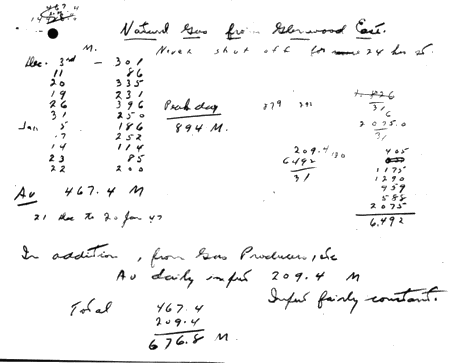 467.4
Natural Gas from Glenwood East.
Never shut off for 24 hrs
M.
Dec. 3rd — 301
11 86
20 335
19 231
26 396
31 250
Jan. 5 186
17 252
14 114
23 85
22 200
Av 467.4 M
21 Dec to 20 Jan 47
Peak day
894 M.
379
1.826
31
6
2075.0
31
209.4
6492
31
405
1175
1290
459
588
2075
6,492
In addition, from Gas Producers, Inc
Av daily input 209.4 M
Input fairly constant.
Total 467.4
209.4
676.8 M.